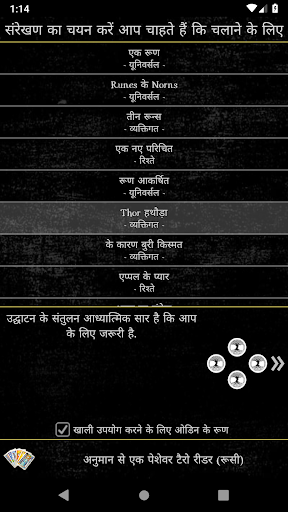 1:14
संरेखण का चयन करें आप चाहते हैं कि चलाने के लिए
एक रूण
- यूनिवर्सल -
Runes के Norns
- यूनिवर्सल -
तीन रून्स
- व्यक्तिगत -
एक नए परिचित
- रिश्ते
रूण आकर्षित
- यूनिवर्सल -
Thor हथौड़ा
- व्यक्तिगत -
के कारण बुरी किस्मत
- व्यक्तिगत -
एप्पल के प्यार
- रिश्ते
उद्घाटन के संतुलन आध्यात्मिक सार है कि आप
के लिए जरूरी है.
खाली उपयोग करने के लिए ओडिन के रूण
अनुमान से एक पेशेवर टैरो रीडर (रूसी)